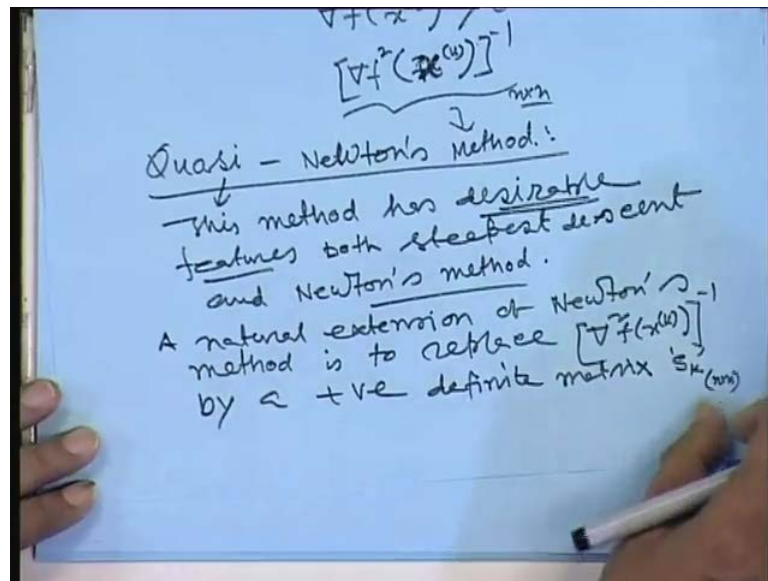 ∇f(x
[∇f²(x⁽ᵏ⁾)]⁻¹
n×n
Quasi - Newton's Method :
This method has desirable
features both steepest descent
and Newton's method.
A natural extension of Newton's
method is to replace [∇²f(x⁽ᵏ⁾)]⁻¹
by a +ve definite matrix 'Sₖ' (n×n)